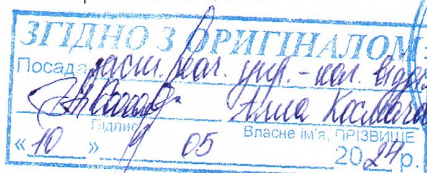 ЗГІДНО З ОРИГІНАЛОМ
Посада заст. нач. упр. - нач. відділ
Алла Космач
Підпис Власне ім'я, ПРІЗВИЩЕ
«10» 05 2024 р.